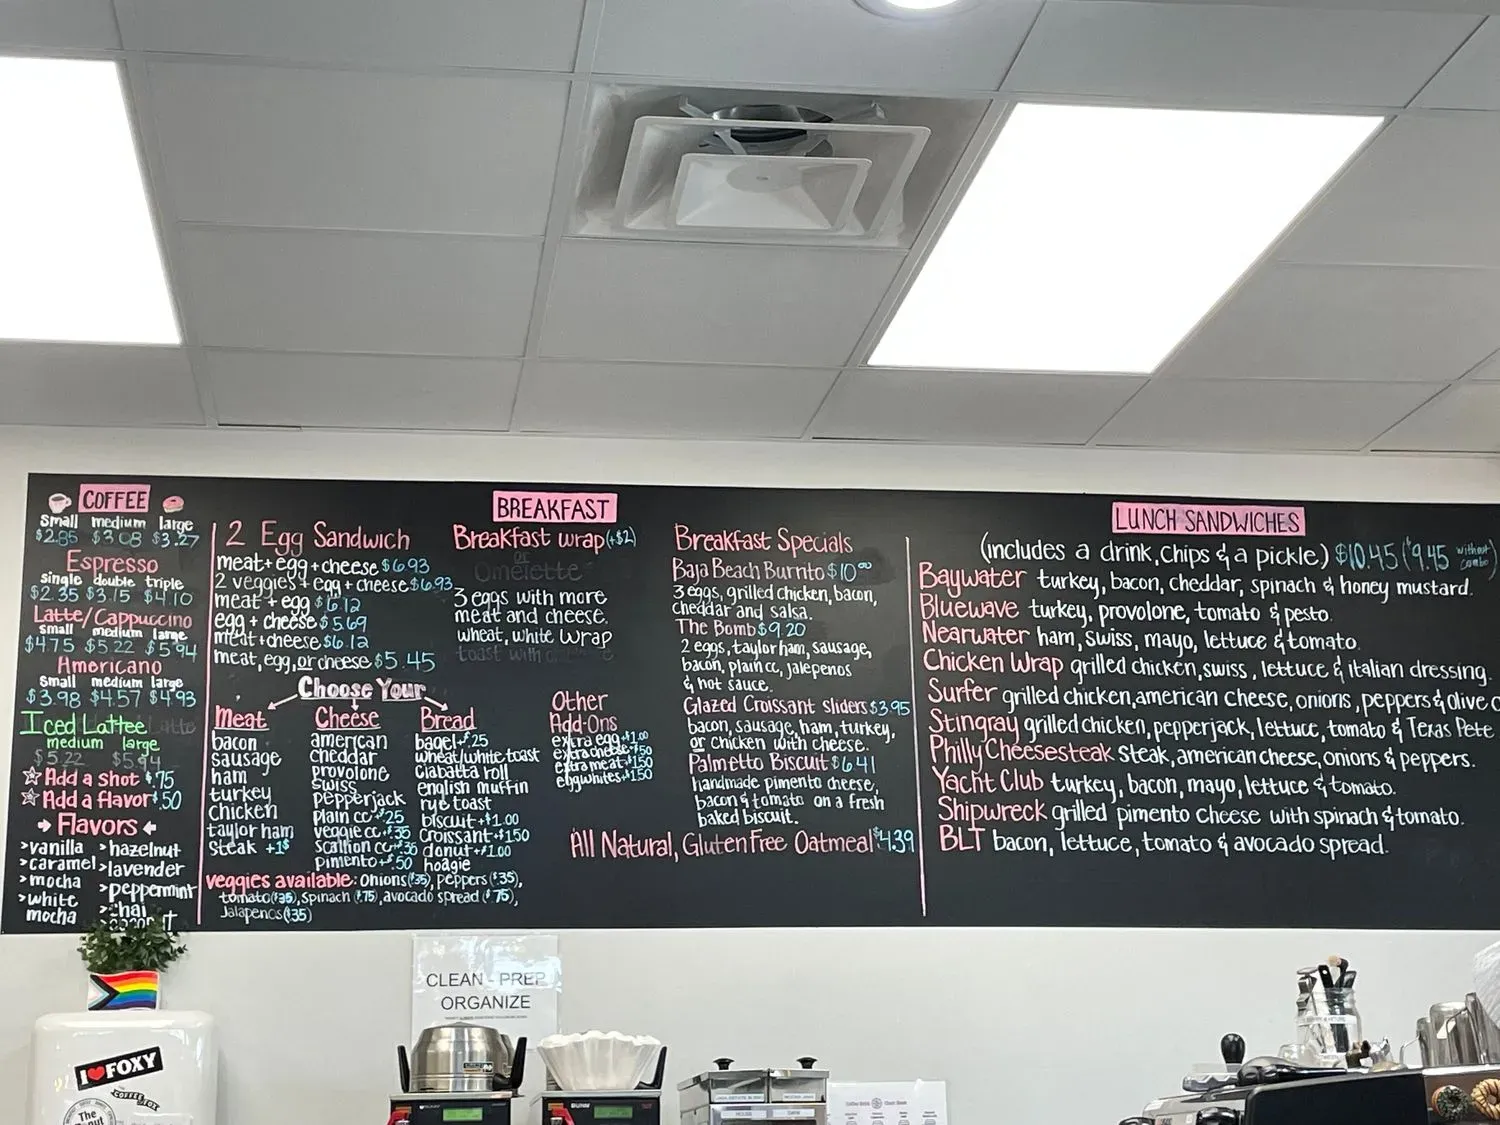 COFFEE
small medium large
$2.85 $3.08 $3.27
Espresso
single double triple
$2.35 $3.15 $4.10
Latte/Cappuccino
small medium large
$4.75 $5.22 $5.94
Americano
small medium large
$3.98 $4.57 $4.93
Iced Lattee
medium large
$5.22 $5.94
Add a shot $.75
Add a flavor $.50
Flavors
>vanilla >hazelnut
>caramel >lavender
>mocha >peppermint
>white mocha >chai
BREAKFAST
2 Egg Sandwich
meat+egg+cheese $6.93
2 veggies+egg+cheese $6.93
meat + egg $6.12
egg + cheese $5.69
meat+cheese $6.12
meat, egg, or cheese $5.45
Choose Your
Meat
bacon
sausage
ham
turkey
chicken
taylor ham
steak +1$
Cheese
american
cheddar
provolone
swiss
pepperjack
plain cc +.25
veggie cc +.35
scallion cc +.35
pimento +.50
Bread
bagel +.25
wheat/white toast
ciabatta roll
english muffin
rye toast
biscuit +$1.00
croissant +$1.50
donut +$1.00
hoagie
veggies available: onions ($.35), peppers ($.35),
tomato ($.35), spinach ($.75), avocado spread ($.75),
Jalapenos ($.35)
Breakfast wrap (+$2)
or
Omelette
3 eggs with more
meat and cheese.
wheat, white wrap
toast with
Other
Add-Ons
extra egg +$1.00
extra cheese +$.50
extra meat +$1.50
egg whites +$1.50
Breakfast Specials
Baja Beach Burrito $10.00
3 eggs, grilled chicken, bacon,
cheddar and salsa.
The Bomb $9.20
2 eggs, taylor ham, sausage,
bacon, plain cc, jalepenos
& hot sauce.
Glazed Croissant sliders $3.95
bacon, sausage, ham, turkey,
or chicken with cheese.
Palmetto Biscuit $6.41
handmade pimento cheese,
bacon & tomato on a fresh
baked biscuit.
All Natural, Gluten Free Oatmeal $4.39
LUNCH SANDWICHES
(includes a drink, chips & a pickle) $10.45 ($9.45 without combo)
Baywater turkey, bacon, cheddar, spinach & honey mustard.
Bluewave turkey, provolone, tomato & pesto.
Nearwater ham, swiss, mayo, lettuce & tomato.
Chicken Wrap grilled chicken, swiss, lettuce & italian dressing.
Surfer grilled chicken, american cheese, onions, peppers & olive o
Stingray grilled chicken, pepperjack, lettuce, tomato & Texas Pete
Philly Cheesesteak steak, american cheese, onions & peppers.
Yacht Club turkey, bacon, mayo, lettuce & tomato.
Shipwreck grilled pimento cheese with spinach & tomato.
BLT bacon, lettuce, tomato & avocado spread.
CLEAN - PREP
ORGANIZE
I ♥ FOXY
THE
COFFEE FOX
The
BUNN
BUNN